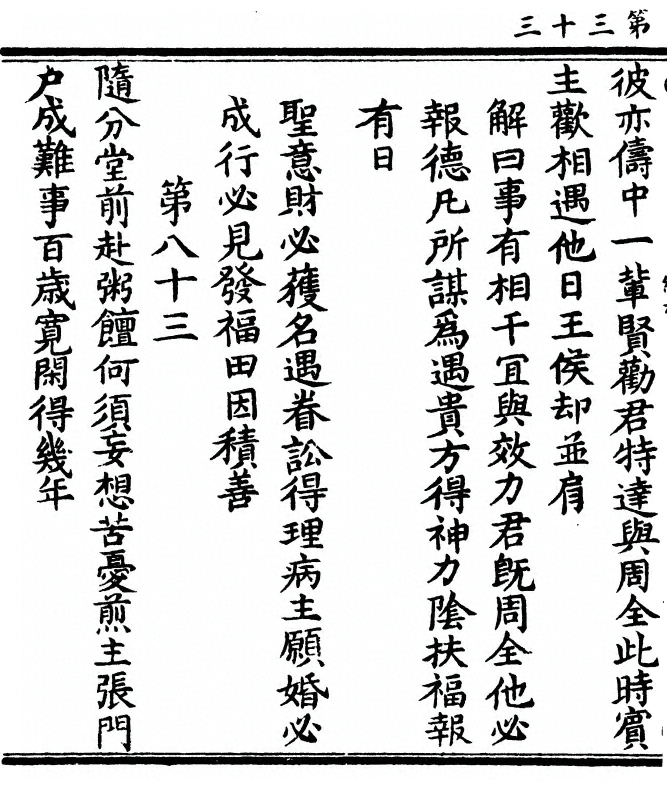 第三十三
彼亦儔中一輩賢勸君特達與周全此時賓
主歡相遇他日王侯却並肩
解曰事有相干宜與效力君旣周全他必
報德凡所謀爲遇貴方得神力陰扶福報
有日
聖意財必獲名遇眷訟得理病主願婚必
成行必見發福田因積善
第八十三
隨分堂前赴粥饘何須妄想苦憂煎主張門
户成難事百歲寛閑得幾年